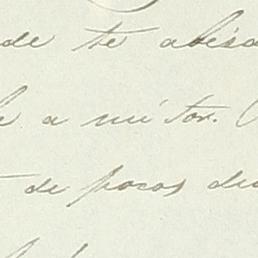 de te abisa
a mi tor.
de pocos di